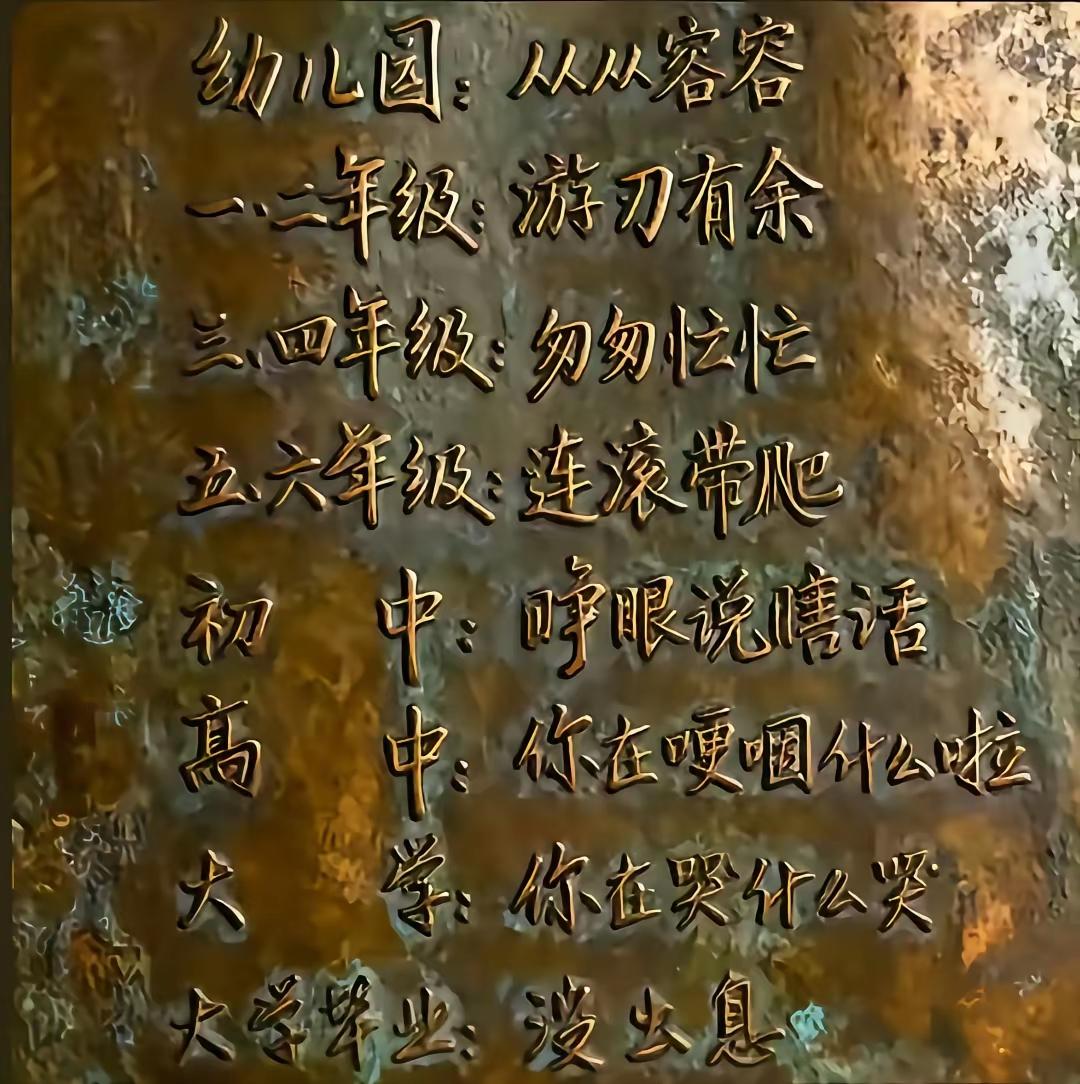 幼儿园：从从容容
一、二年级：游刃有余
三、四年级：匆匆忙忙
五、六年级：连滚带爬
初中：睁眼说瞎话
高中：你在哽咽什么啦
大学：你在哭什么哭
大学毕业：没出息